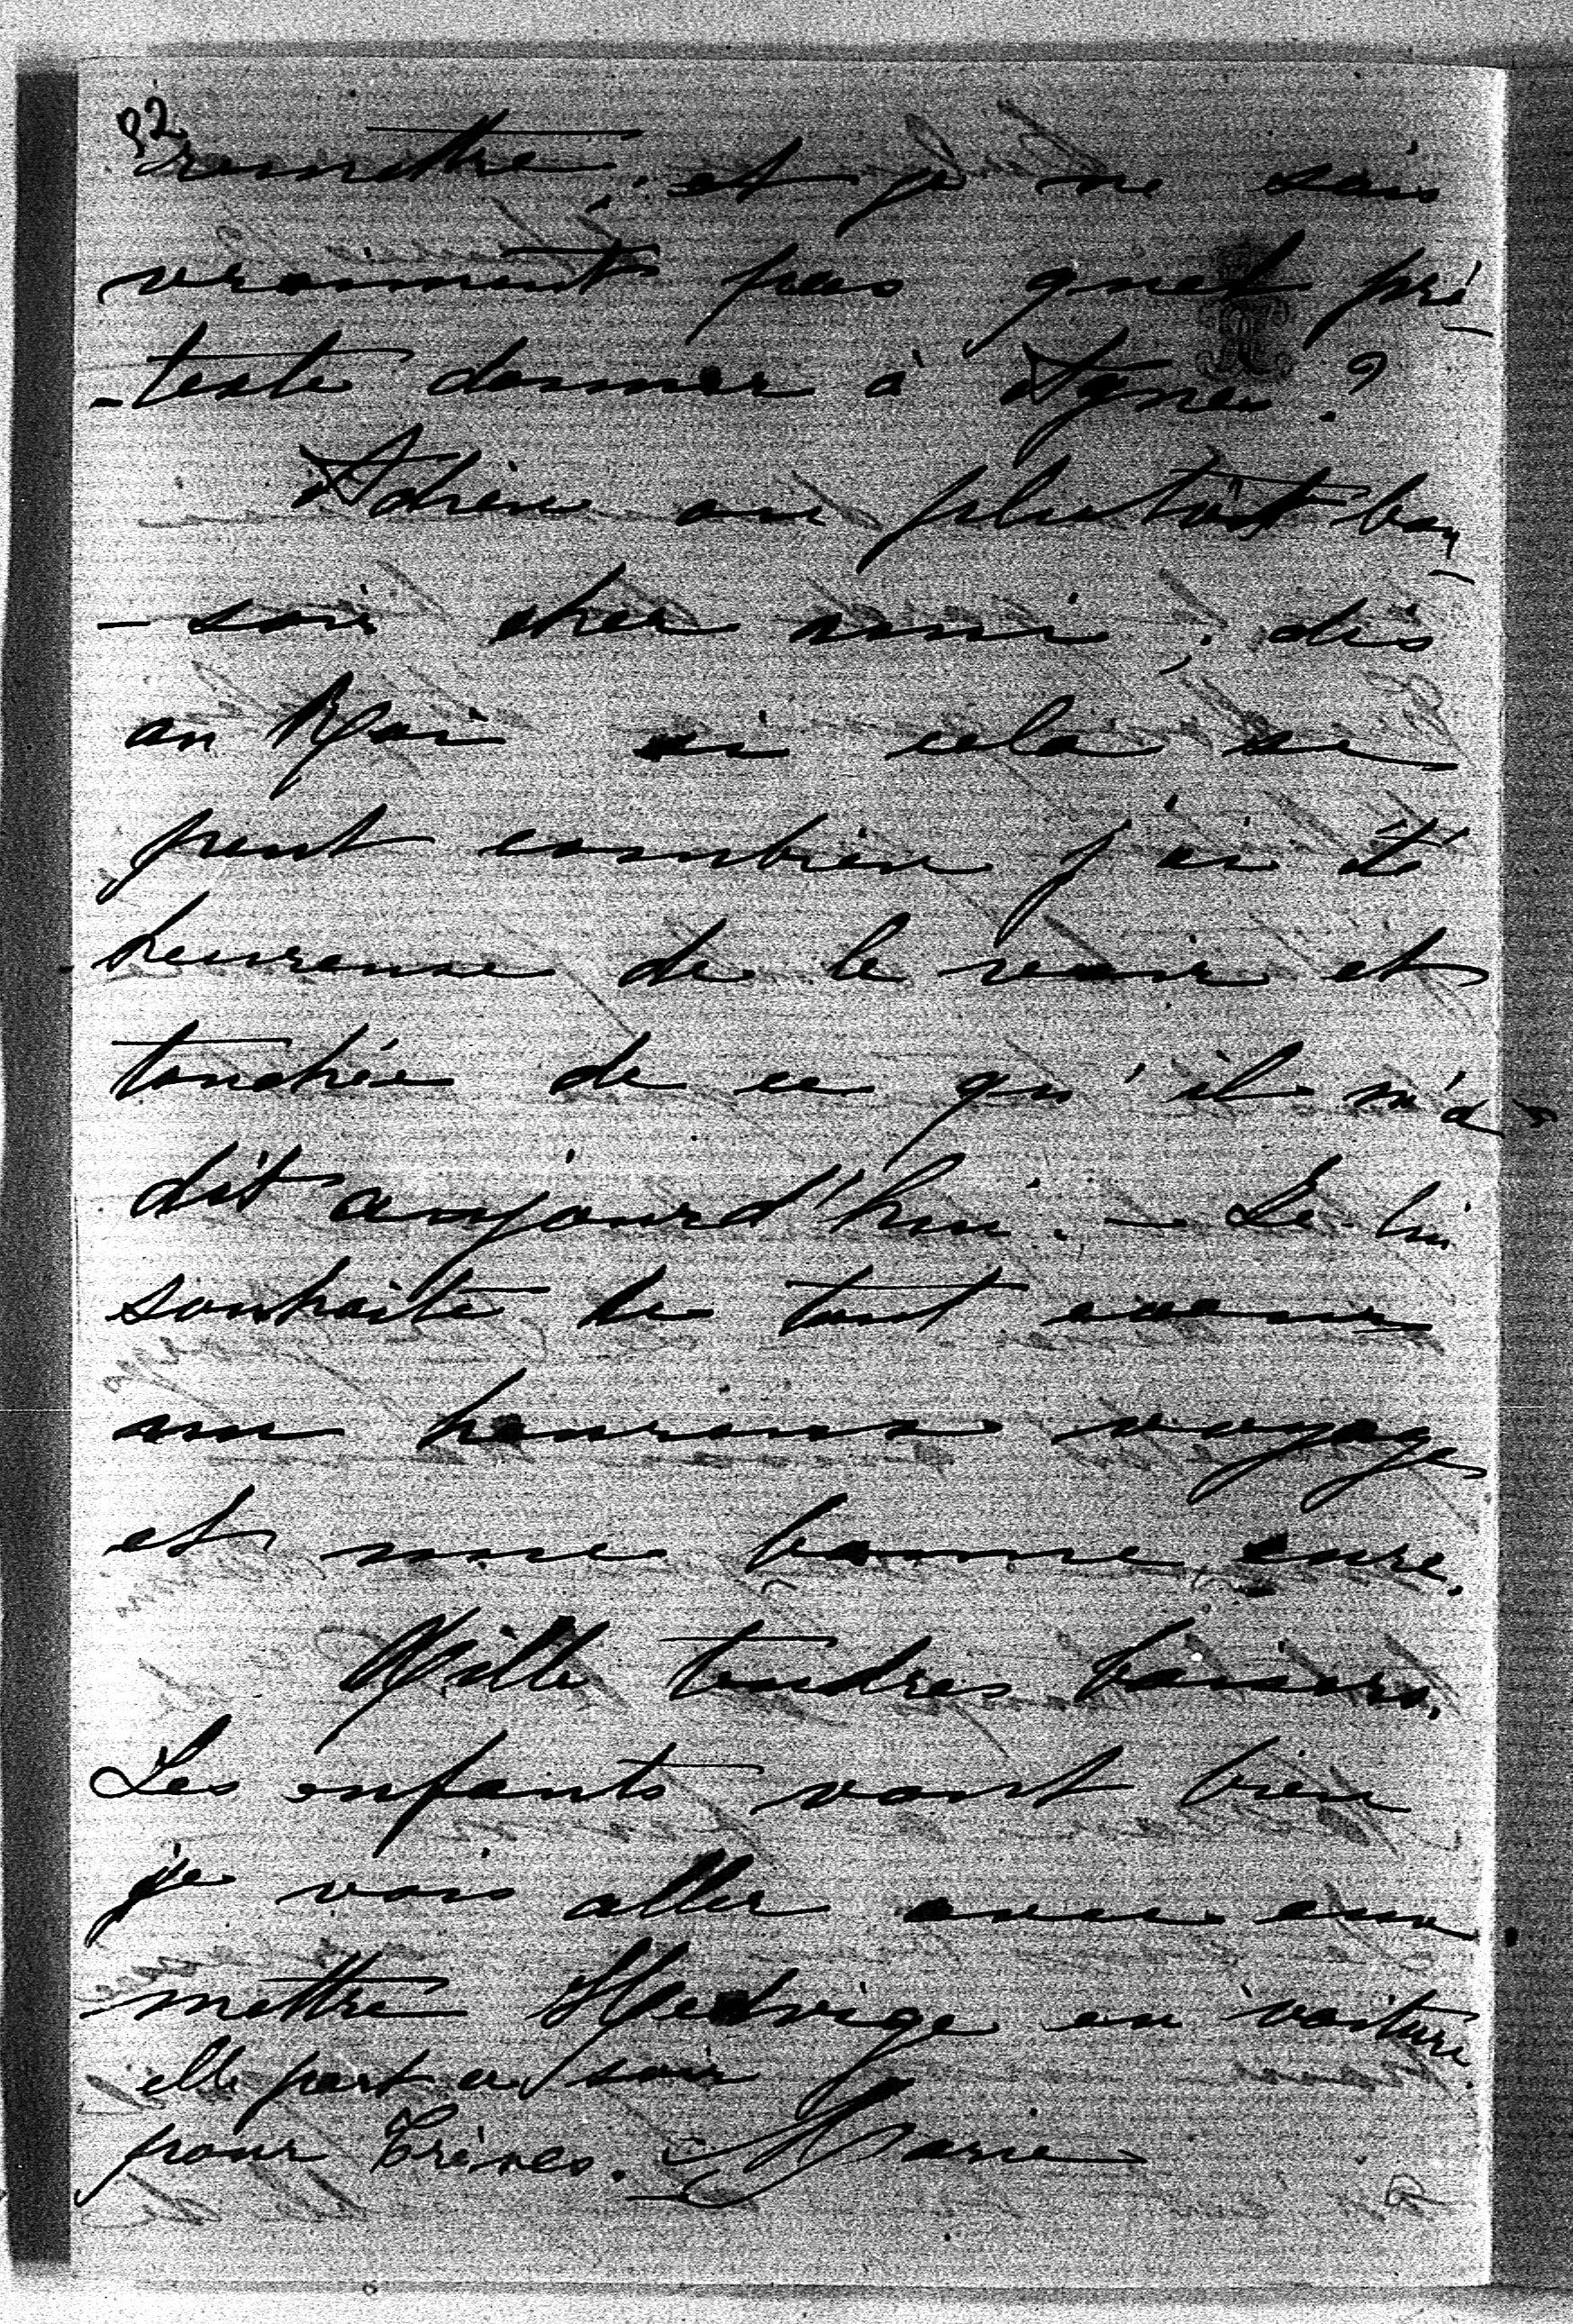 92
remettre, et je ne sais
vraiment pas quel pré
-texte donner à Agnes ?
Adieu ou plutôt bon
- soir cher ami, dis
au Roi si cela se
peut combien j'ai été
heureuse de le revoir et
touchée de ce qu'il m'a
dit aujourd'hui. – Je lui
souhaite de tout coeur
un heureux voyage
et une bonne cure.
Mille tendres baisers.
Les enfants vont bien
je vais aller avec eux
mettre Hedwige en voiture
elle part ce soir
pour Trèves. Marie